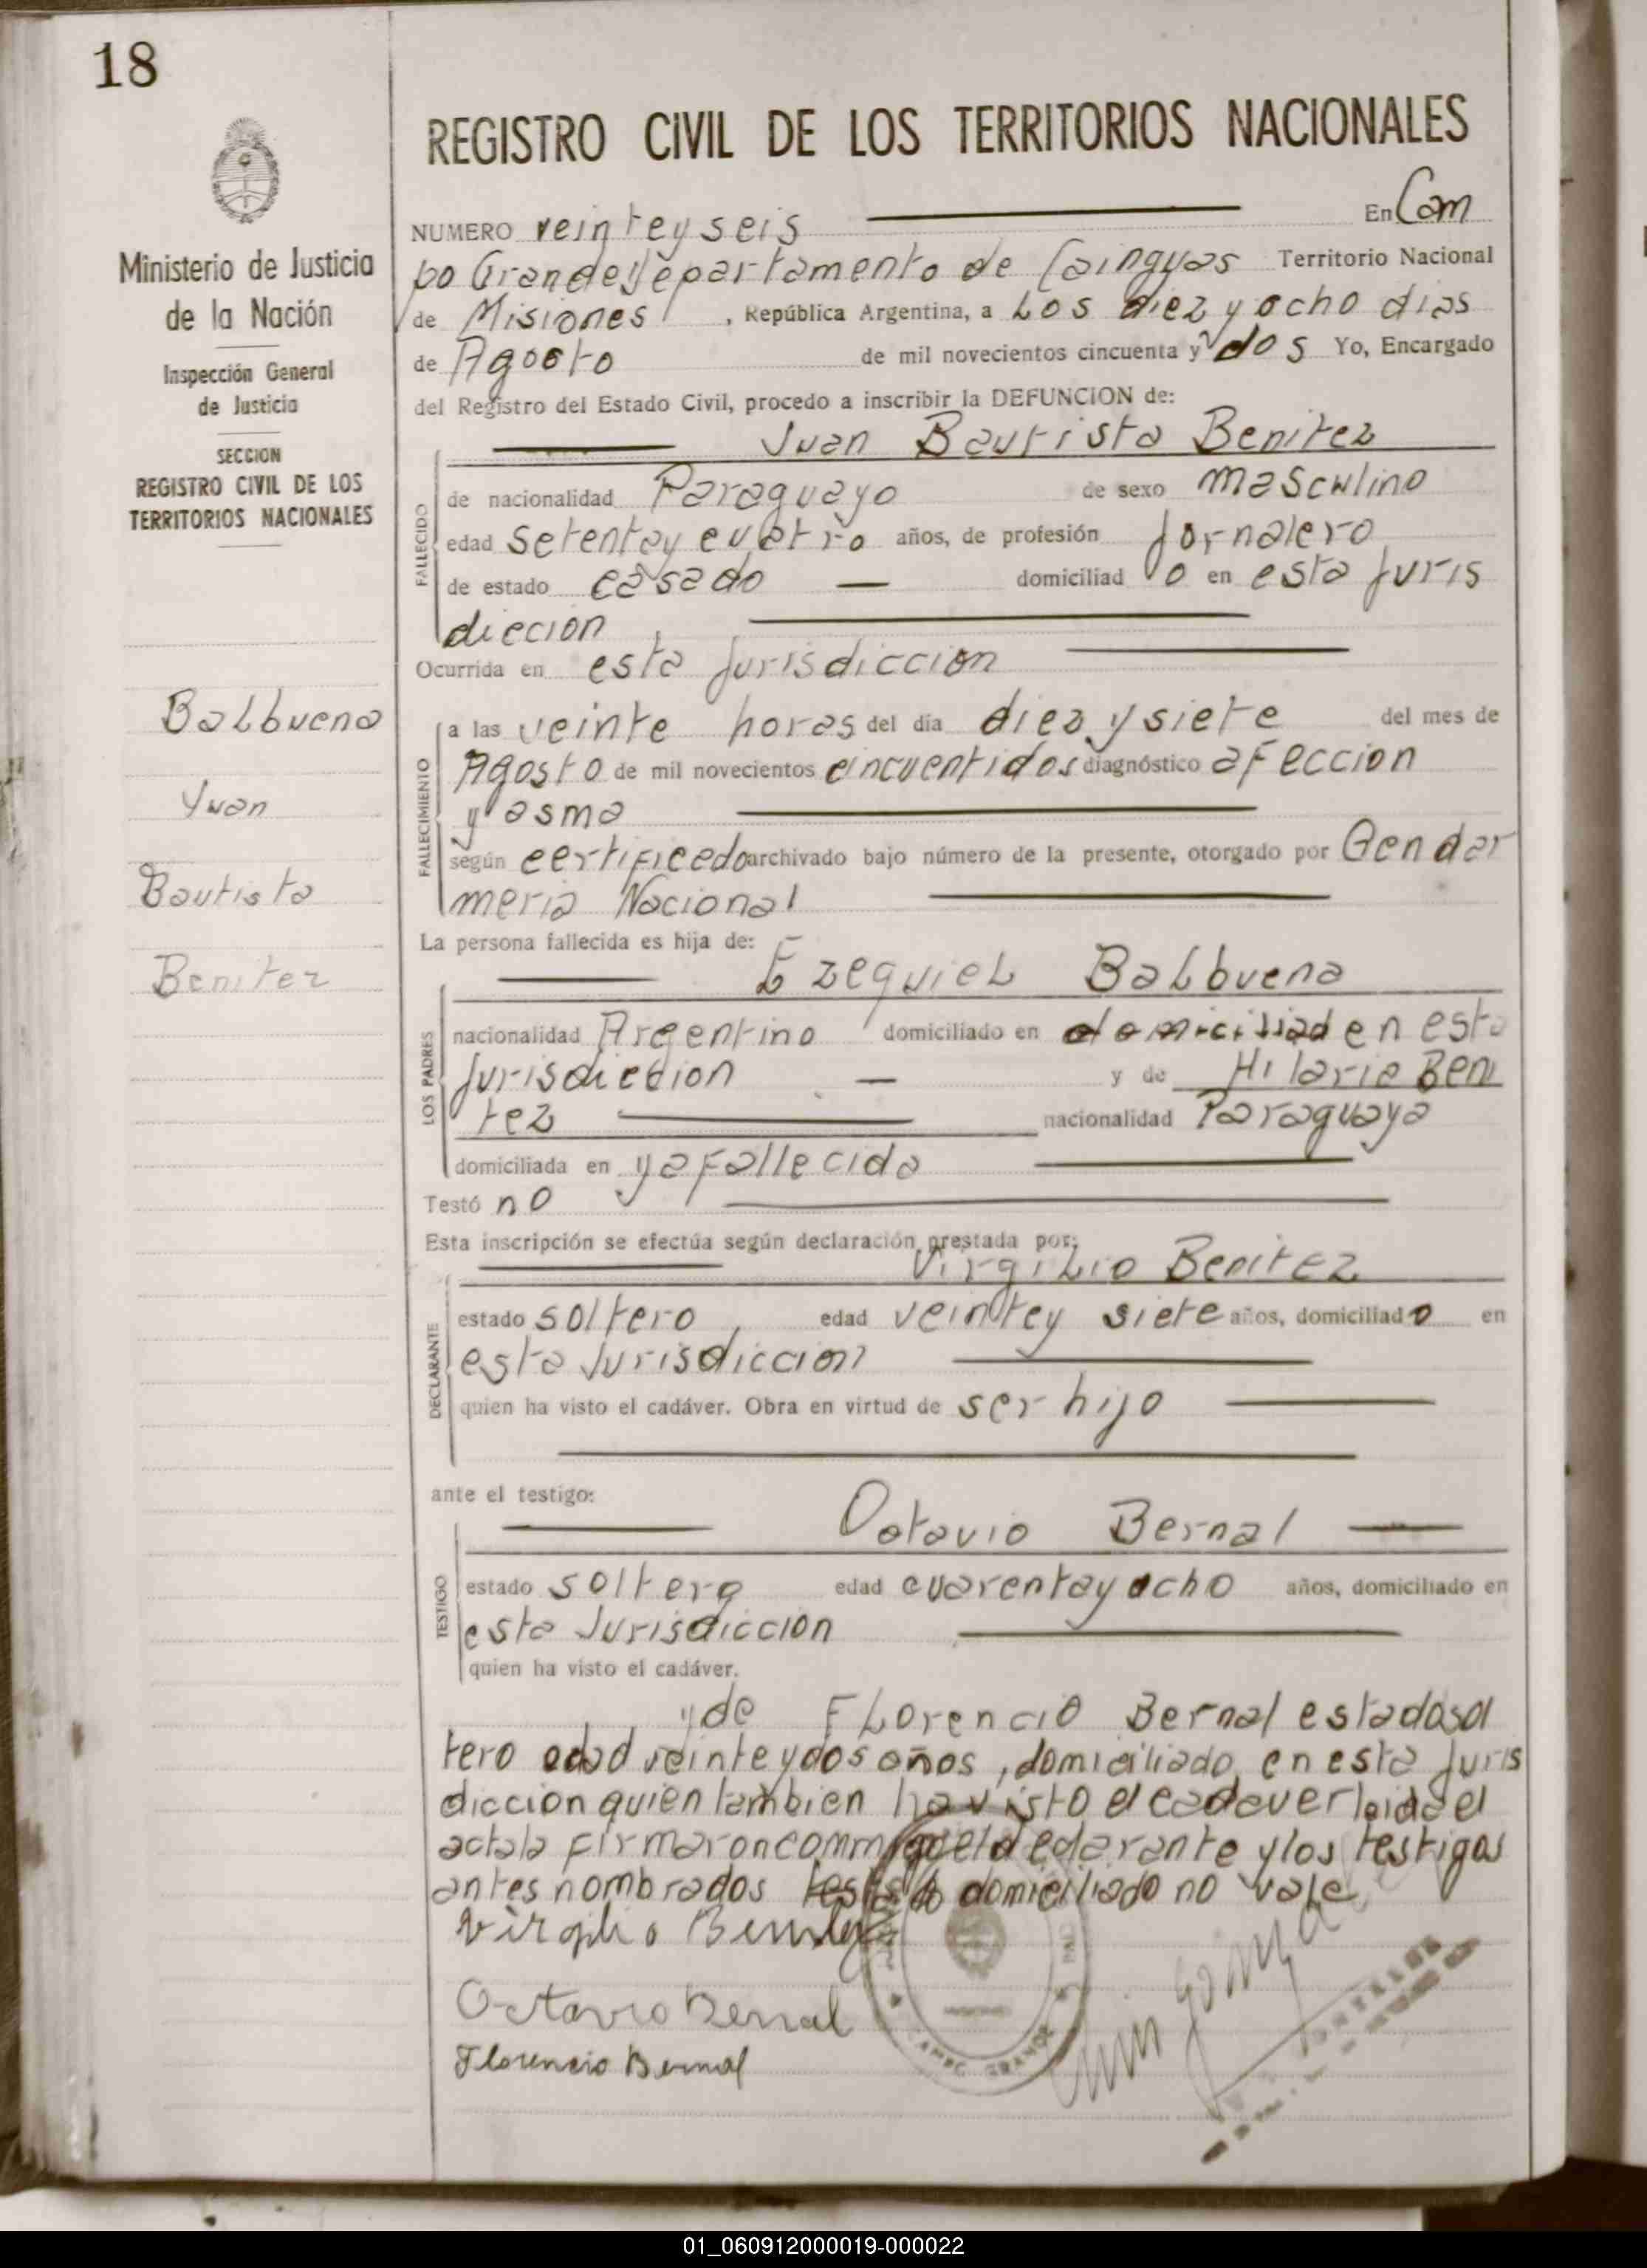 18
REGISTRO CIVIL DE LOS TERRITORIOS NACIONALES
Ministerio de Justicia
de la Nación
Inspección General
de Justicia
SECCION
REGISTRO CIVIL DE LOS
TERRITORIOS NACIONALES
Balbuena
Juan
Bautista
Benitez
NUMERO veinte y seis En Cam
po Grande Departamento de Cainguas Territorio Nacional
de Misiones, República Argentina, a Los diez y ocho dias
de Agosto de mil novecientos cincuenta y dos Yo, Encargado
del Registro del Estado Civil, procedo a inscribir la DEFUNCION de:
Juan Bautista Benitez
FALLECIDO
de nacionalidad Paraguayo de sexo masculino
edad setenta y cuatro años, de profesión Jornalero
de estado casado domiciliad o en esta Juris
diccion
Ocurrida en esta Jurisdiccion
FALLECIMIENTO
a las veinte horas del día diez y siete del mes de
Agosto de mil novecientos cincuentidos diagnóstico afeccion
y asma
según certificado archivado bajo número de la presente, otorgado por Gendar
meria Nacional
La persona fallecida es hija de:
Ezequiel Balbuena
LOS PADRES
nacionalidad Argentino domiciliado en domiciliad en esta
Jurisdiccion y de Hilaria Beni
tez nacionalidad Paraguaya
domiciliada en ya fallecida
Testó no
Esta inscripción se efectúa según declaración prestada por:
Virgilio Benitez
DECLARANTE
estado soltero edad veinte y siete años, domiciliado en
esta Jurisdiccion
quien ha visto el cadáver. Obra en virtud de ser hijo
ante el testigo:
Octavio Bernal
TESTIGO
estado soltero edad cuarenta y ocho años, domiciliado en
esta Jurisdiccion
quien ha visto el cadáver.
y de Florencio Bernal estado sol
tero edad veinte y dos años, domiciliado en esta Juris
diccion quien tambien ha visto el cadaver leida el
acta la firmaron conmigo el declarante y los testigos
antes nombrados testado domiciliado no vale
Virgilio Benitez
Octavio Bernal
Florencio Bernal
CAMPO GRANDE
01_060912000019-000022